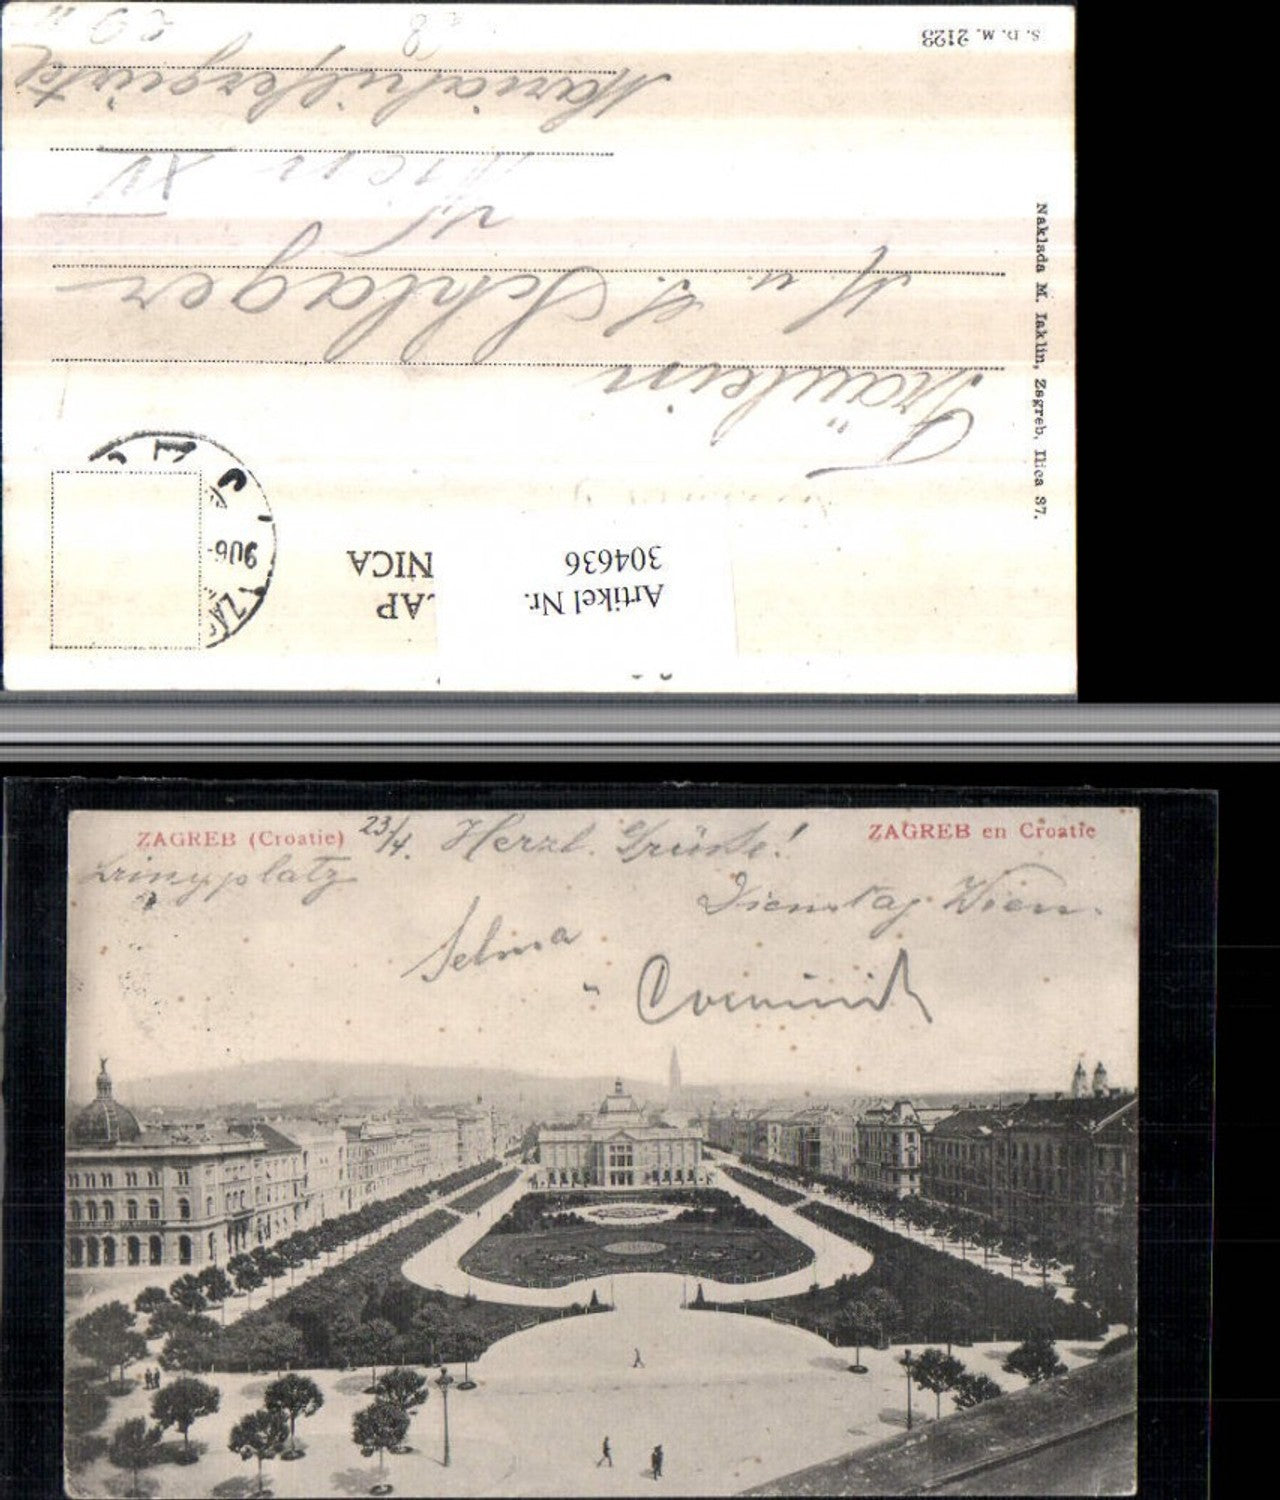 Artikel Nr.
304636
LAP
NICA
ZÁG
906
Fräulein
M. u. J. Schlager
Wien XV
Mariahilfergürtel
S. D. M. 2123
Naklada M. Iaklin, Zagreb, Ilica 37.
ZAGREB (Croatie)
ZAGREB en Croatie
23/4. Herzl. Grüsse!
Dienstag Wien.
Selma